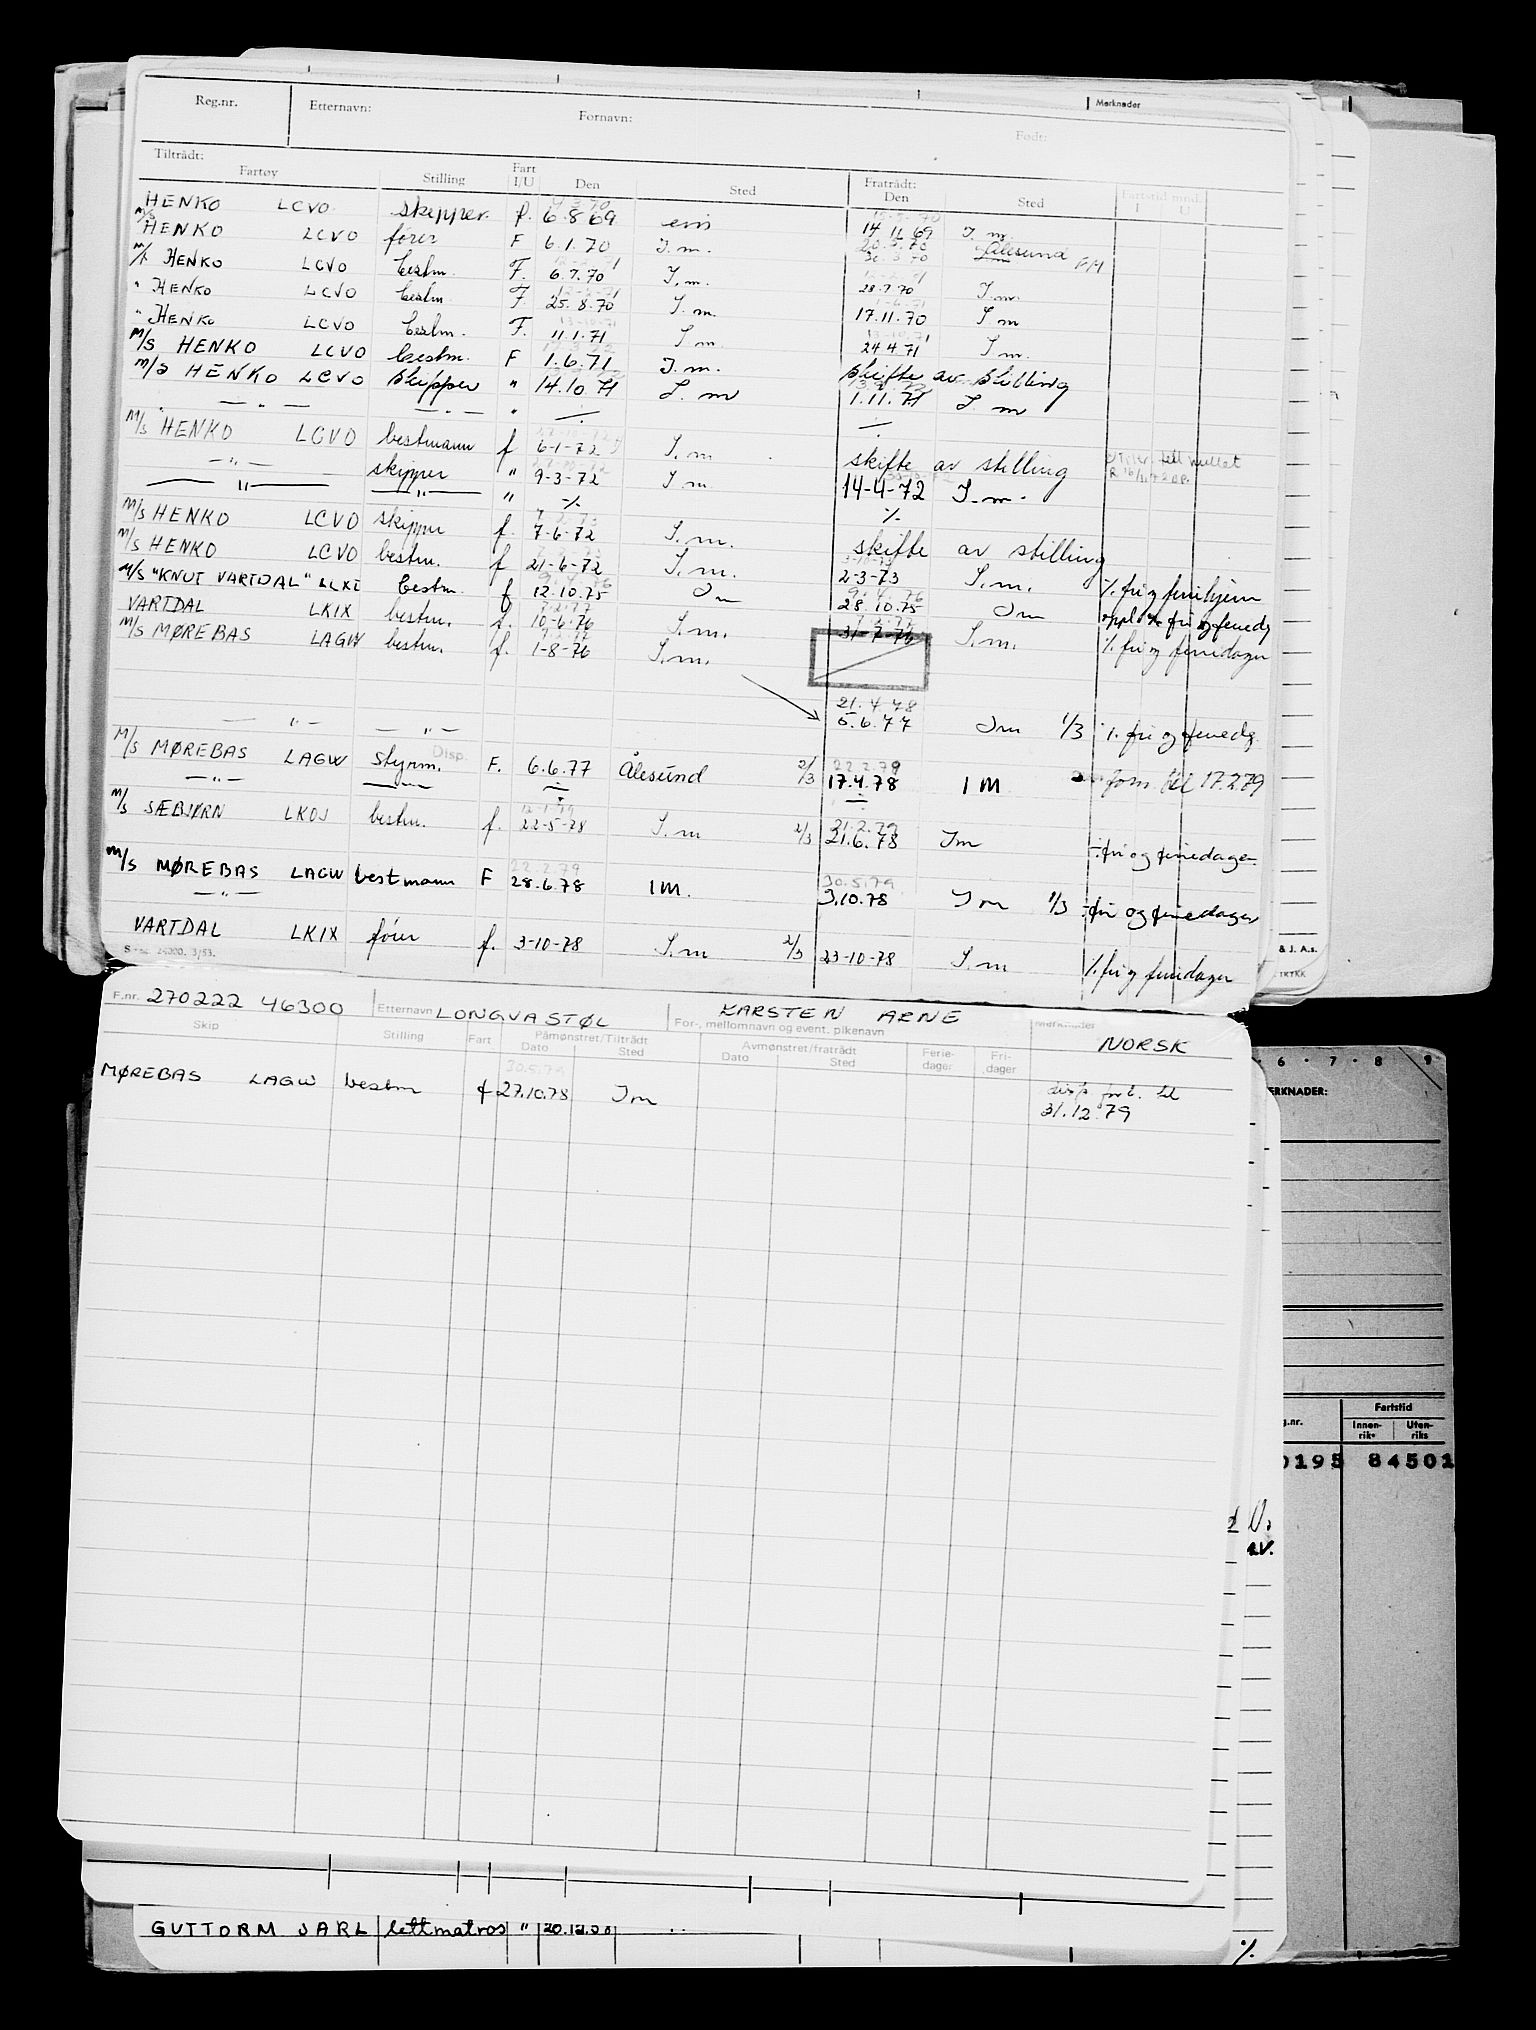 Reg.nr. Etternavn: Fornavn: Født: Merknader
Tiltrådt: Fratrådt:
Fartøy Stilling Fart I/U Den Sted Den Sted Fartstid mnd. I U
HENKO LCVO skipper f. 6.8.69 14.11.69 I.m.
M/S HENKO LCVO fører F 6.1.70 I.m. 30.3.70 Ålesund FM
M/S HENKO LCVO bestm. F. 6.7.70 I.m. 28.7.70 I.m.
" HENKO LCVO bestm. F. 25.8.70 I.m. 17.11.70 I m
" HENKO LCVO bestm. F. 11.1.71 I m 24.4.71 I m.
M/S HENKO LCVO bestm. F 1.6.71 I.m. skifte av stilling
M/S HENKO LCVO skipper " 14.10.71 I. m 1.11.71 I. m
— " — — " — " ./. ./.
M/S HENKO LCVO bestmann f 6-1-72 I.m. skifte av stilling
— " — skipper " 9-3-72 I m. 14-4-72 I.m.
— " — — " — " ./. ./.
M/S HENKO LCVO skipper f. 7-6-72 I.m. skifte av stilling
M/S HENKO LCVO bestm. f 21-6-72 I.m. 2-3-73 I.m. ./. fri og
M/S "KNUT VARTDAL" LLXI bestm. f 12.10.75 Im 28.10.75 Im fri og
VARTDAL LKIX bestm. f. 10-6-76 I.m. 31-7-76 I.m. ./. fri og feriedager
M/S MØREBAS LAGW bestm. f. 1-8-76 I.m.
21.4.78
— " — — " — 5.6.77 Im 1/3 ./. fri og feriedg.
M/S MØREBAS LAGW styrm. Disp. F. 6.6.77 Ålesund 2/3 22.2.79 17.4.78 IM til 17.2.79
— " —
M/S SÆBJØRN LKOJ bestm. f. 22-5-78 I.m 2/3 21.2.79 21.6.78 Im ÷ fri og feriedager
M/S MØREBAS LAGW bestmann F 22.2.79 28.6.78 IM. 30.5.79 3.10.78 Im 1/3 ÷ fri og feriedager
— " —
VARTDAL LKIX fører f. 3-10-78 I.m 2/3 23-10-78 I.m ./. fri og feriedager
24000. 3/53.
& J. A.s.
F.nr. 270222 46300 Etternavn LONGVASTØL KARSTEN ARNE
For-, mellomnavn og event. pikenavn Merknader NORSK
Skip Stilling Fart Påmønstret/Tiltrådt Dato Sted Avmønstret/fratrådt Dato Sted Ferie-dager Fri-dager
30.5.79
MØREBAS LAGW bestm f 27.10.78 Im disp. forl. til
31.12.79
6 · 7 · 8 · 9
ERKNADER:
Fartstid
g.nr. Innen-riks Uten-riks
0195 84501
GUTTORM JARL lettmatros "
./.